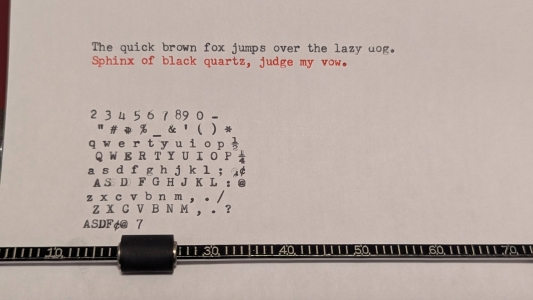 The quick brown fox jumps over the lazy uog.
Sphinx of black quartz, judge my vow.
2 3 4 5 6 7 8 9 0 -
" # % _ & ' ( ) *
q w e r t y u i o p ½
Q W E R T Y U I O P ¼
a s d f g h j k l ; ¢
A S D F G H J K L : @
z x c v b n m , . /
Z X C V B N M , . ?
ASDF¢@ 7
10 30 40 50 60 70